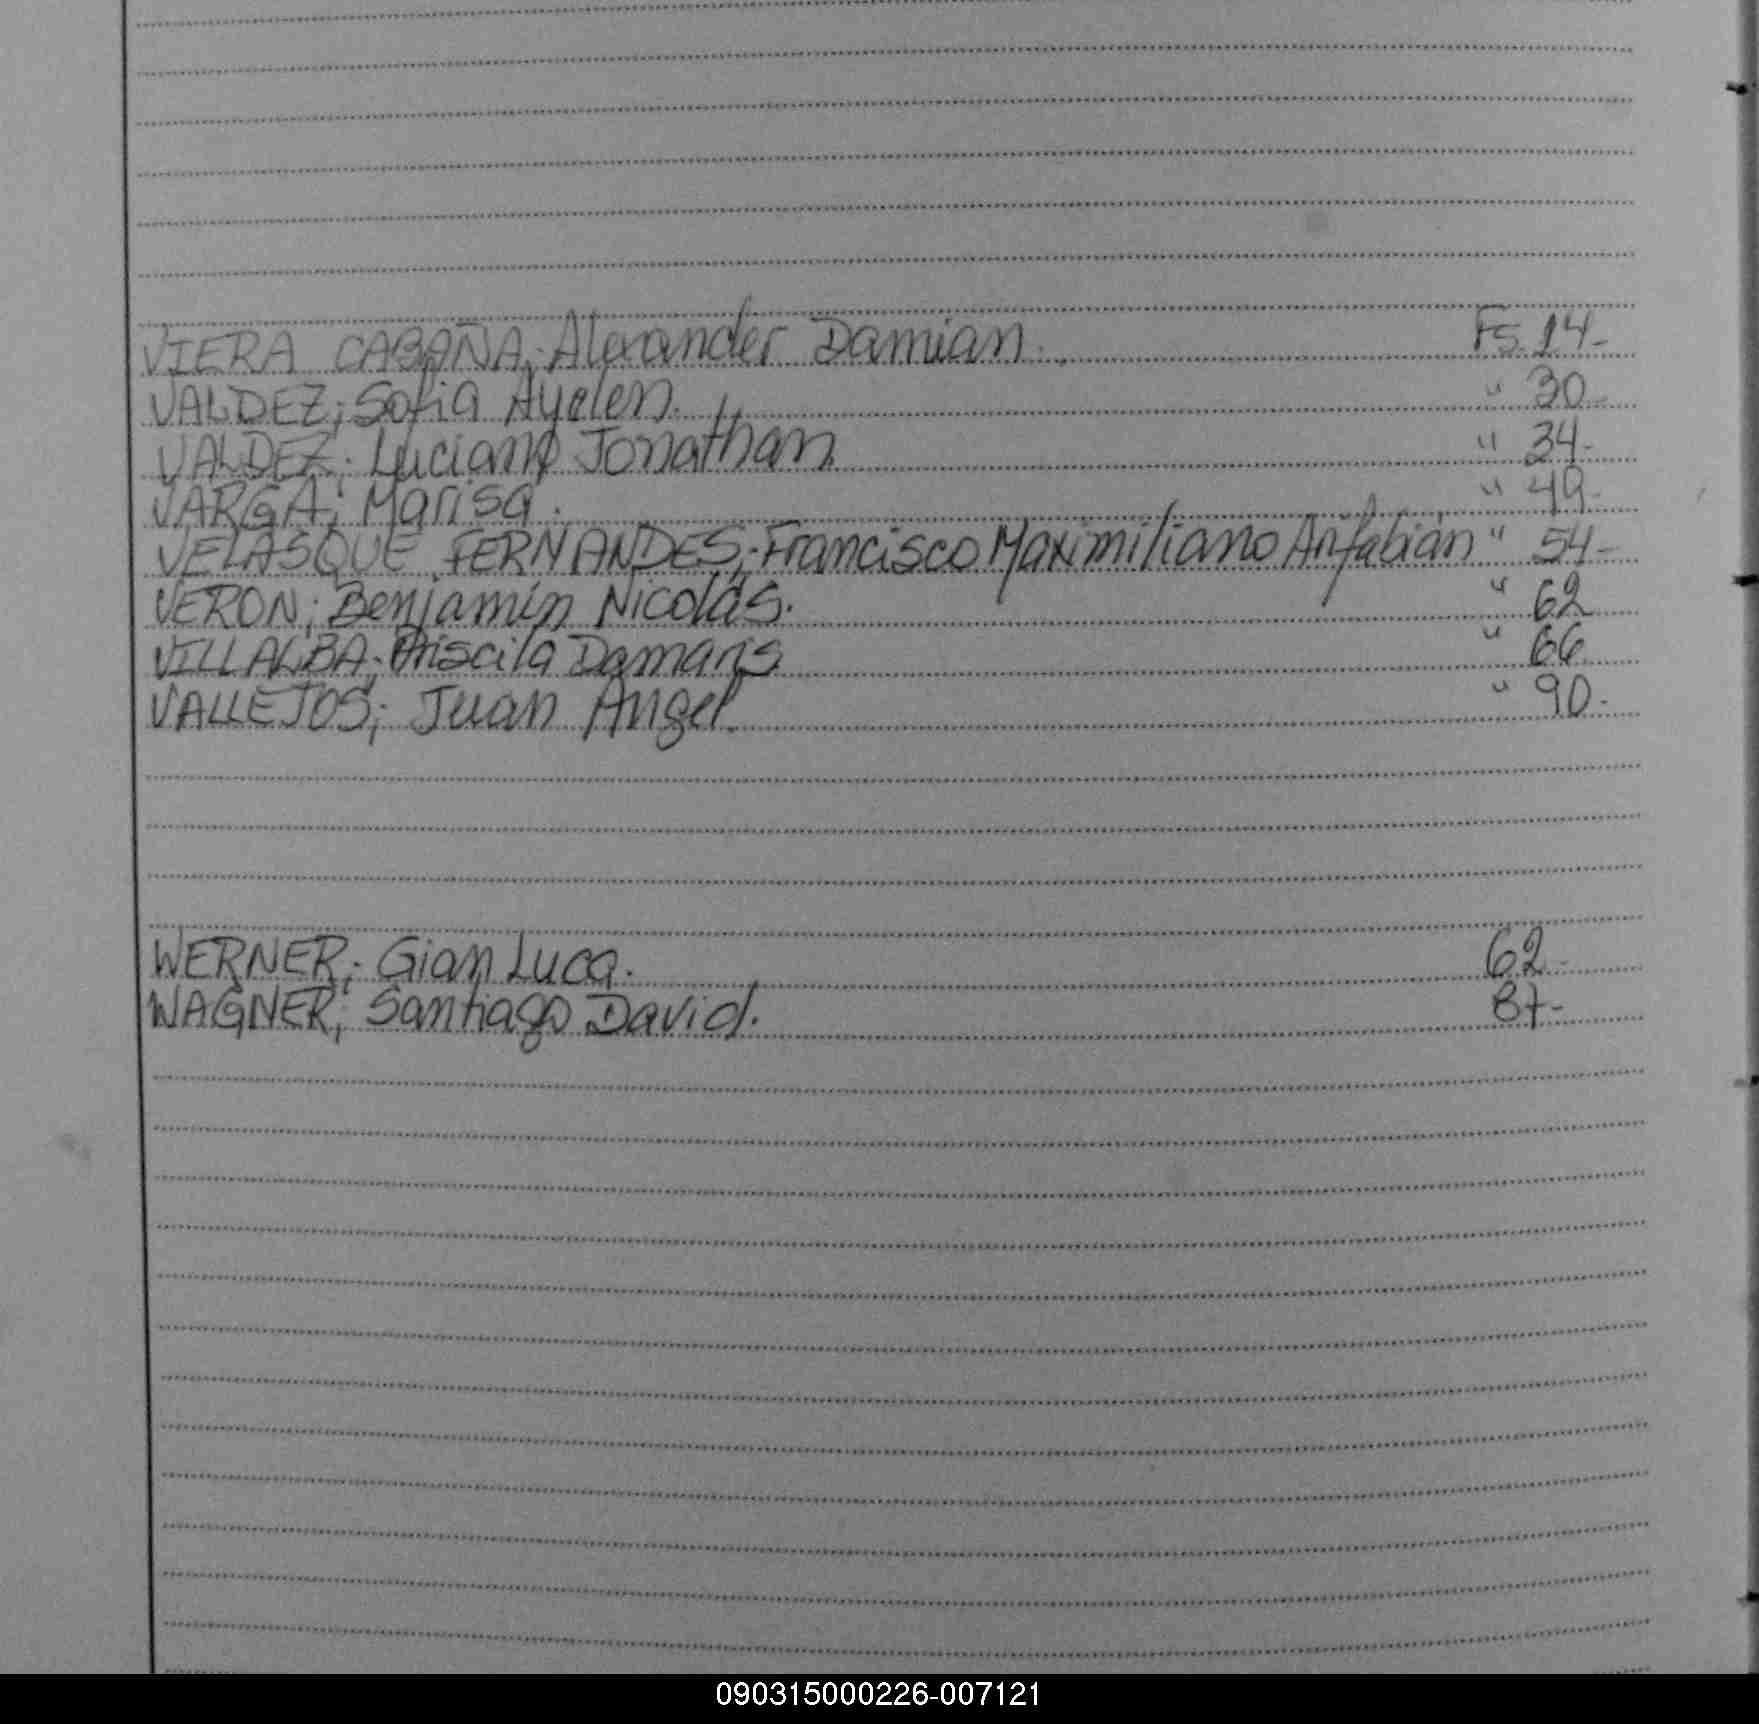 VIERA CABAÑA; Alexander Damian. Fs. 14-
VALDEZ; Sofia Ayelen. " 30-
VALDEZ; Luciano Jonathan. " 34-
VARGA; Marisa. " 49-
VELASQUE FERNANDES; Francisco Maximiliano Anfabián " 54-
VERON; Benjamín Nicolás. " 62
VILLALBA; Priscila Damaris " 66
VALLEJOS; Juan Angel. " 90-
WERNER; Gian Luca. 62-
WAGNER; Santiago David. 87-
090315000226-007121